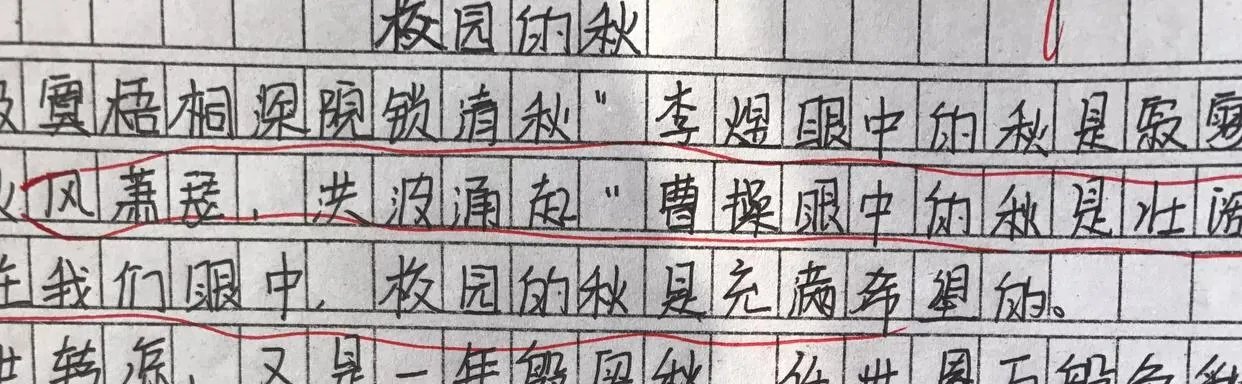 校园的秋
寞梧桐深院锁清秋"李煜眼中的秋是寂寞
风萧瑟,洪波涌起"曹操眼中的秋是壮阔
在我们眼中,校园的秋是充满希望的。
转凉,又是一年